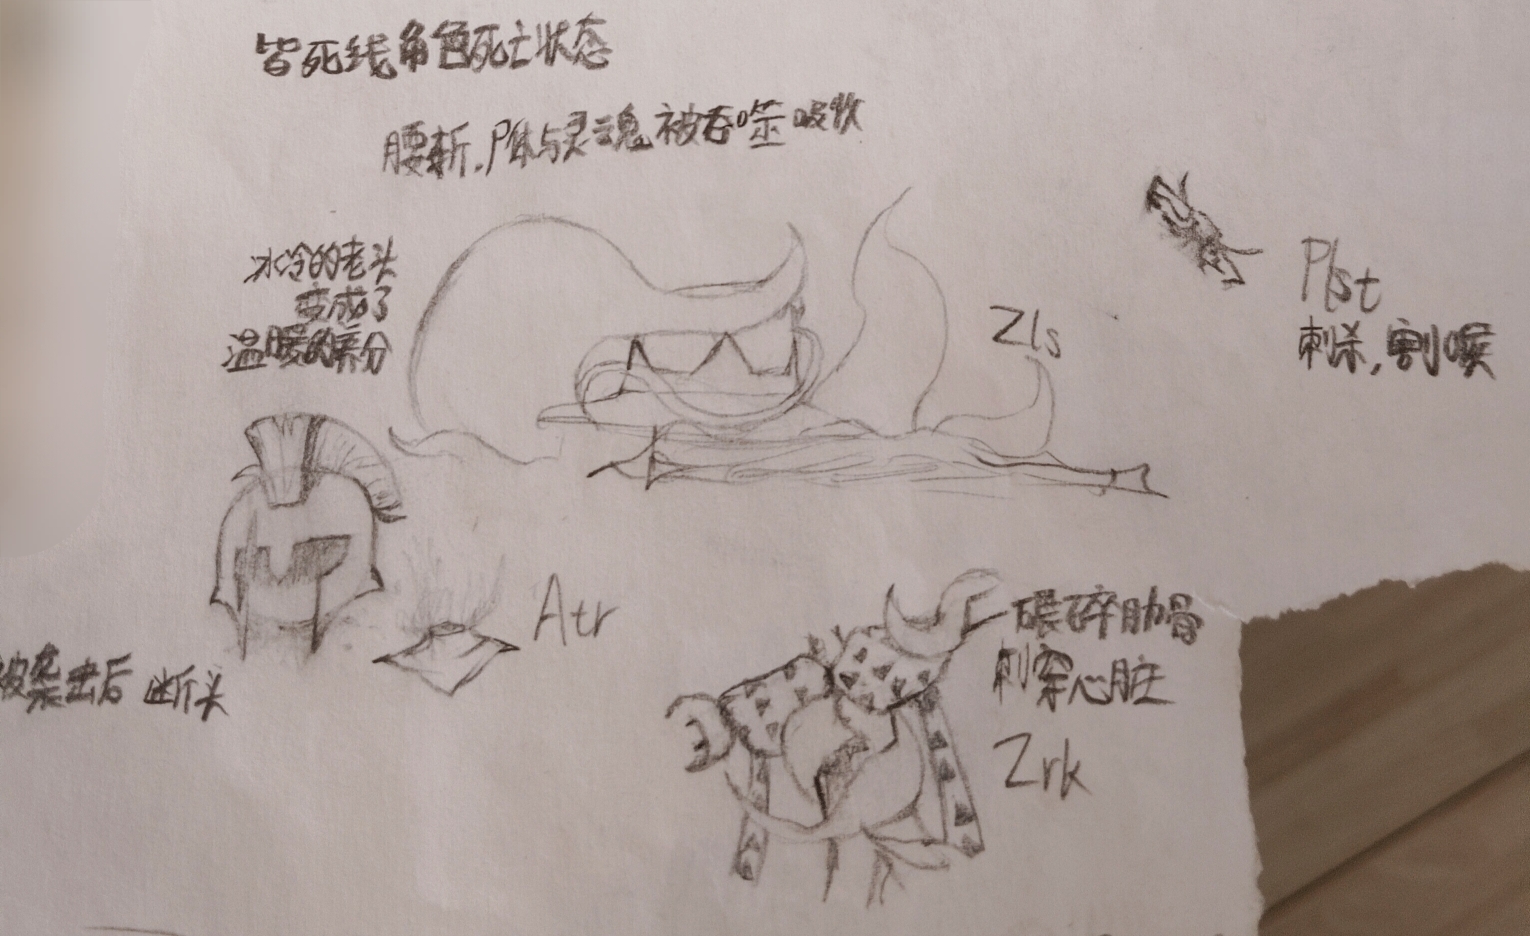 皆死线角色死亡状态
腰斩.尸体与灵魂被吞噬吸收
冰冷的老头
变成了
温暖的养分
Zls
Plst
刺杀,割喉
Atr
被袭击后 断头
碾碎肋骨
刺穿心脏
Zrk